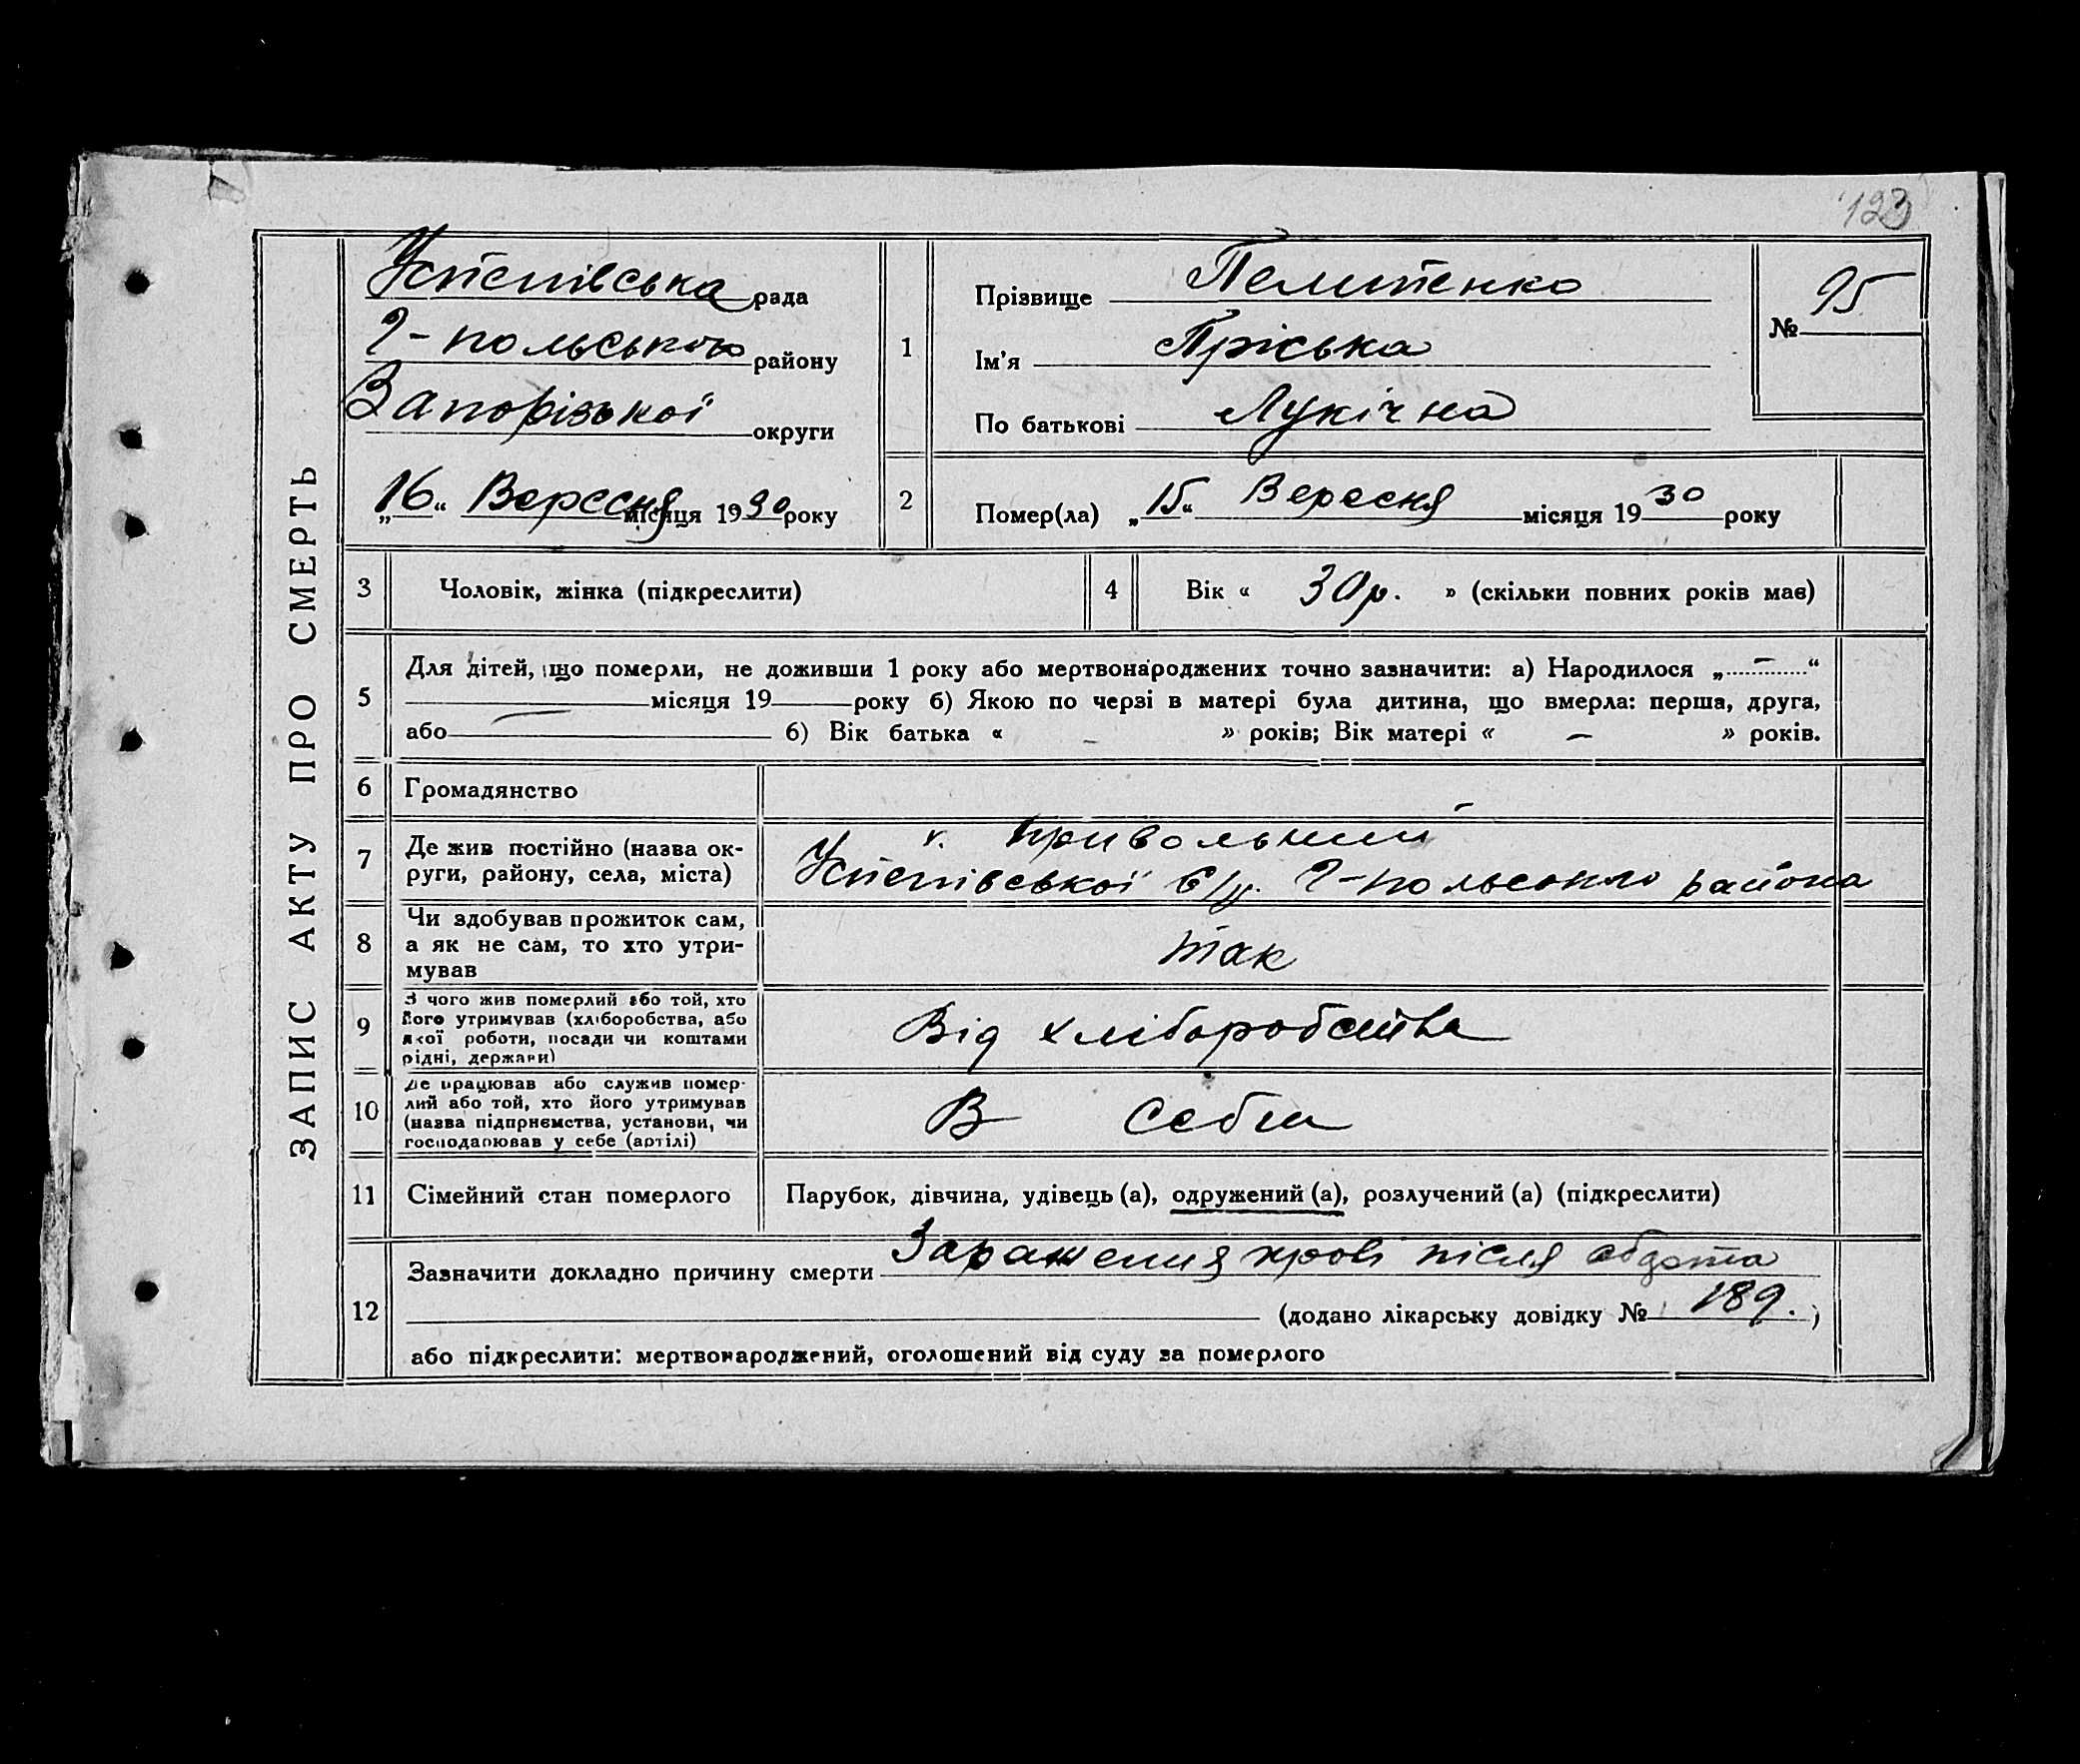 123
ЗАПИС АКТУ ПРО СМЕРТЬ
Успенівська рада
Г-польського району
Запорізької округи
„16“ Вересня місяця 1930 року
1
Прізвище
Ім’я Пріська
По батькові Лукічна
№ 95
2
Помер(ла) „15“ Вересня місяця 1930 року
3
Чоловік, жінка (підкреслити)
4
Вік « 30 р. » (скільки повних років має)
5
Для дітей, що померли, не доживши 1 року або мертвонароджених точно зазначити: а) Народилося „ — “
місяця 19 року б) Якою по черзі в матері була дитина, що вмерла: перша, друга,
або — б) Вік батька « – » років; Вік матері « – » років.
6
Громадянство
7
Де жив постійно (назва ок-
руги, району, села, міста)
х. Привольний
Успенівської с/р. Г-польського района
8
Чи здобував прожиток сам,
а як не сам, то хто утри-
мував
так
9
З чого жив померлий або той, хто
його утримував (хліборобства, або
якої роботи, посади чи коштами
рідні, держави)
Від хліборобства
10
Де працював або служив помер-
лий або той, хто його утримував
(назва підприємства, установи, чи
господарював у себе (артілі)
В себи
11
Сімейний стан померлого
Парубок, дівчина, удівець (а), одружений (а), розлучений (а) (підкреслити)
12
Зазначити докладно причину смерти Заражения крові після
(додано лікарську довідку № 189. )
або підкреслити: мертвонароджений, оголошений від суду за померлого